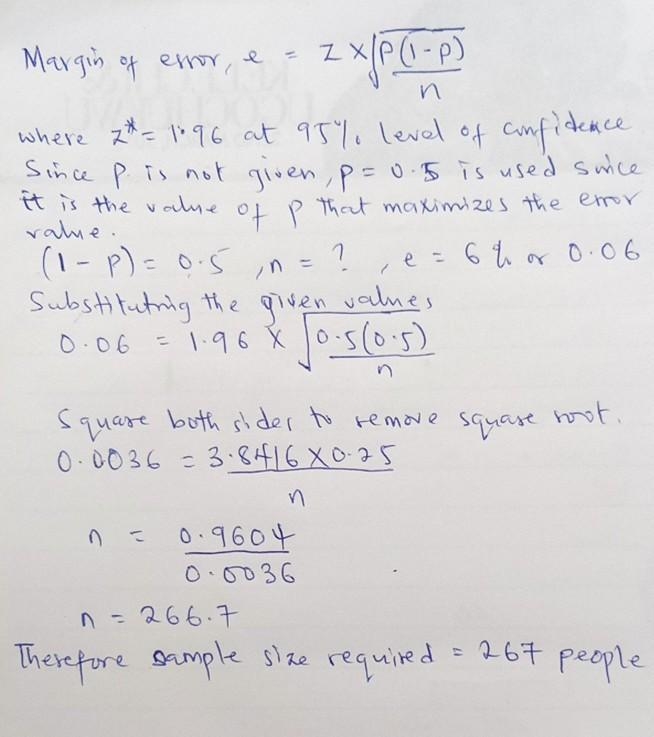 Margin of error, e = Z × √P(1-P)
n
where Z* = 1.96 at 95% level of confidence
Since P is not given, P = 0.5 is used since
it is the value of P that maximizes the error
value.
(1 - P) = 0.5, n = ?, e = 6% or 0.06
Substituting the given values
0.06 = 1.96 × √0.5(0.5)
n
Square both sides to remove square root.
0.0036 = 3.8416 × 0.25
n
n = 0.9604
0.0036
n = 266.7
Therefore sample size required = 267 people